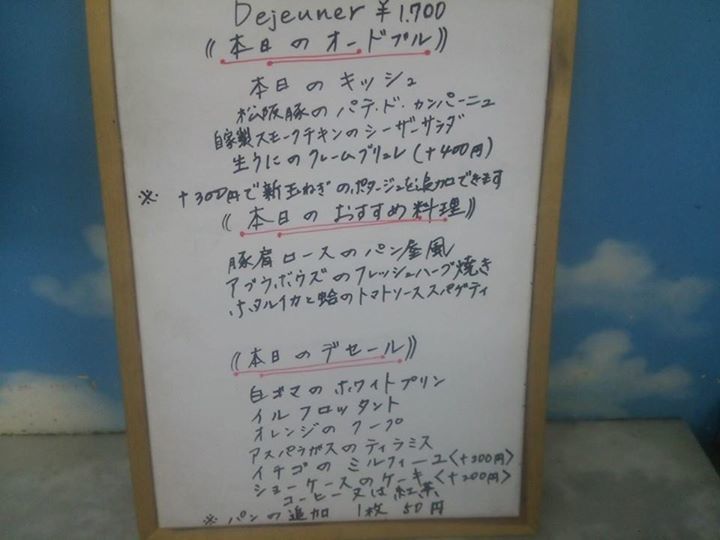 Dejeuner ¥1.700
《本日のオードブル》
本日のキッシュ
松阪豚のパテ・ド・カンパーニュ
自家製スモークチキンのシーザーサラダ
生うにのクレームブリュレ(+400円)
※ +300円で新玉ねぎのポタージュを追加できます
《本日のおすすめ料理》
豚肩ロースのパン釜風
アブウボウズのフレッシュハーブ焼き
ホタルイカと蛤のトマトソーススパゲティ
《本日のデセール》
白ゴマのホワイトプリン
イルフロッタント
オレンジのクープ
アスパラガスのティラミス
イチゴのミルフィーユ<+200円>
ショーケースのケーキ<+200円>
コーヒー又は紅茶
※ パンの追加 1枚 50円